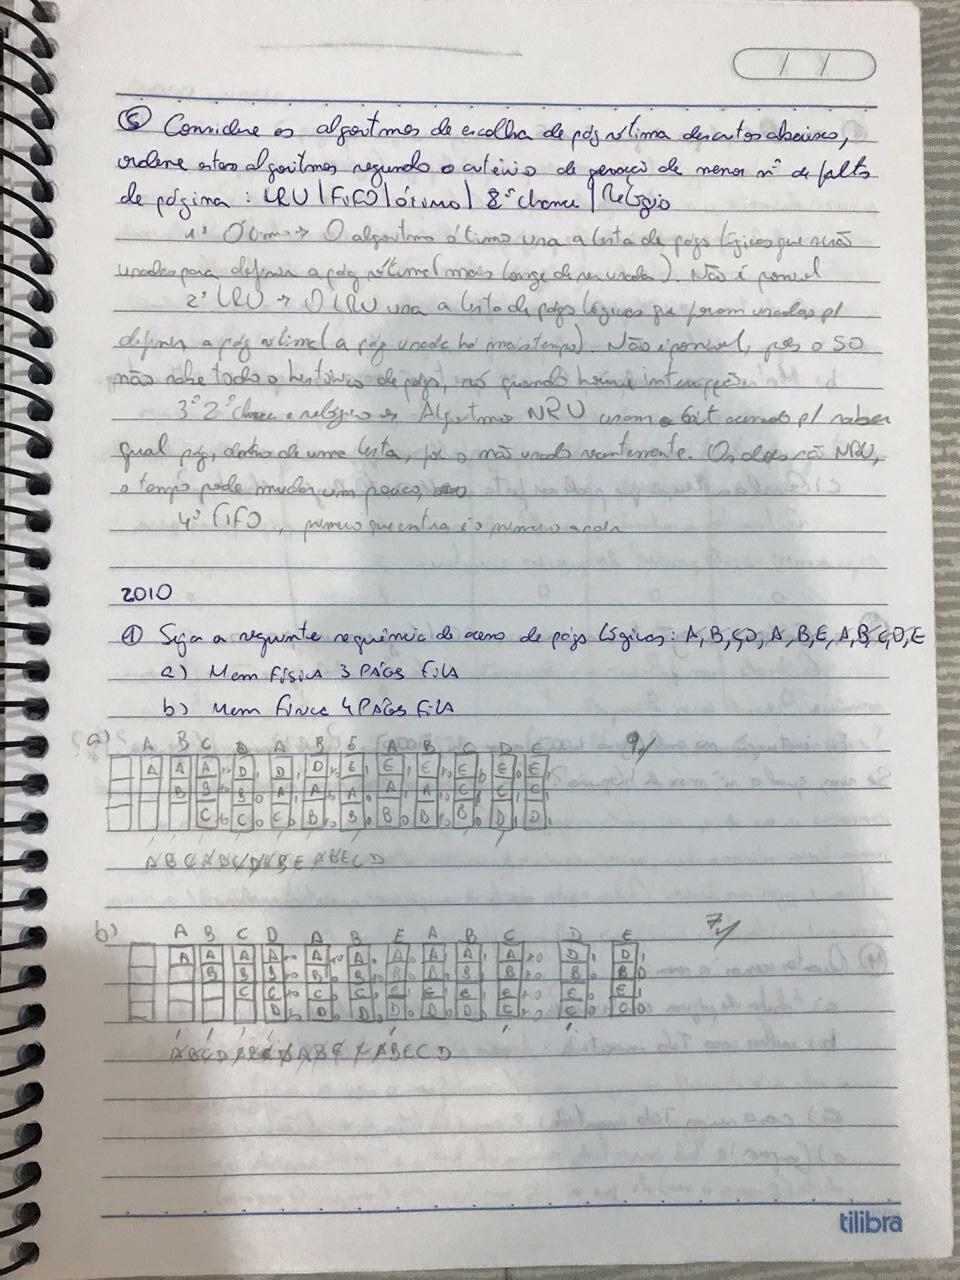 / /
⑤ Considere os algoritmos de escolha de pág vítima descritos abaixo,
ordene estes algoritmos segundo o critério de geração de menor nº de falta
de página: LRU | FIFO | ótimo | 2ª chance | Relógio
1º Ótimo → O algoritmo ótimo usa a lista de págs lógicas que serão
usadas para definir a pág vítima (mais longe de ser usada). Não é possível
2º LRU → O LRU usa a lista de págs lógicas que foram usadas p/
definir a pág vítima (a pág usada há mais tempo). Não é possível, pois o SO
não sabe todo o histórico de págs, só quando houve interrupções
3º 2ª chance e relógio → Algoritmo NRU usam o bit acessado p/ saber
qual pág, dentro de uma lista, foi o não usado recentemente. Os dois são NRU,
o tempo pode mudar um pouco
4º FIFO, primeiro que entra é o primeiro a sair
2010
① Seja a seguinte sequência de acesso de págs lógicas: A, B, C, D, A, B, E, A, B, C, D, E
a) Mem física 3 PÁGS FILA
b) Mem física 4 PÁGS FILA
a) A B C D A B E A B C D E 9
A A A D D D E E E E E E
B B B A A A A A C C C
C C C B B B D B D D
A B C A B C D A B E A B E C D
b) A B C D A B E A B C D E 7
A A A A A A A A A A D D
B B B B B B B B B B B
C C C C E E E E E E
D D D D D D C C C
A B C D A B C A B E A B E C D
tilibra